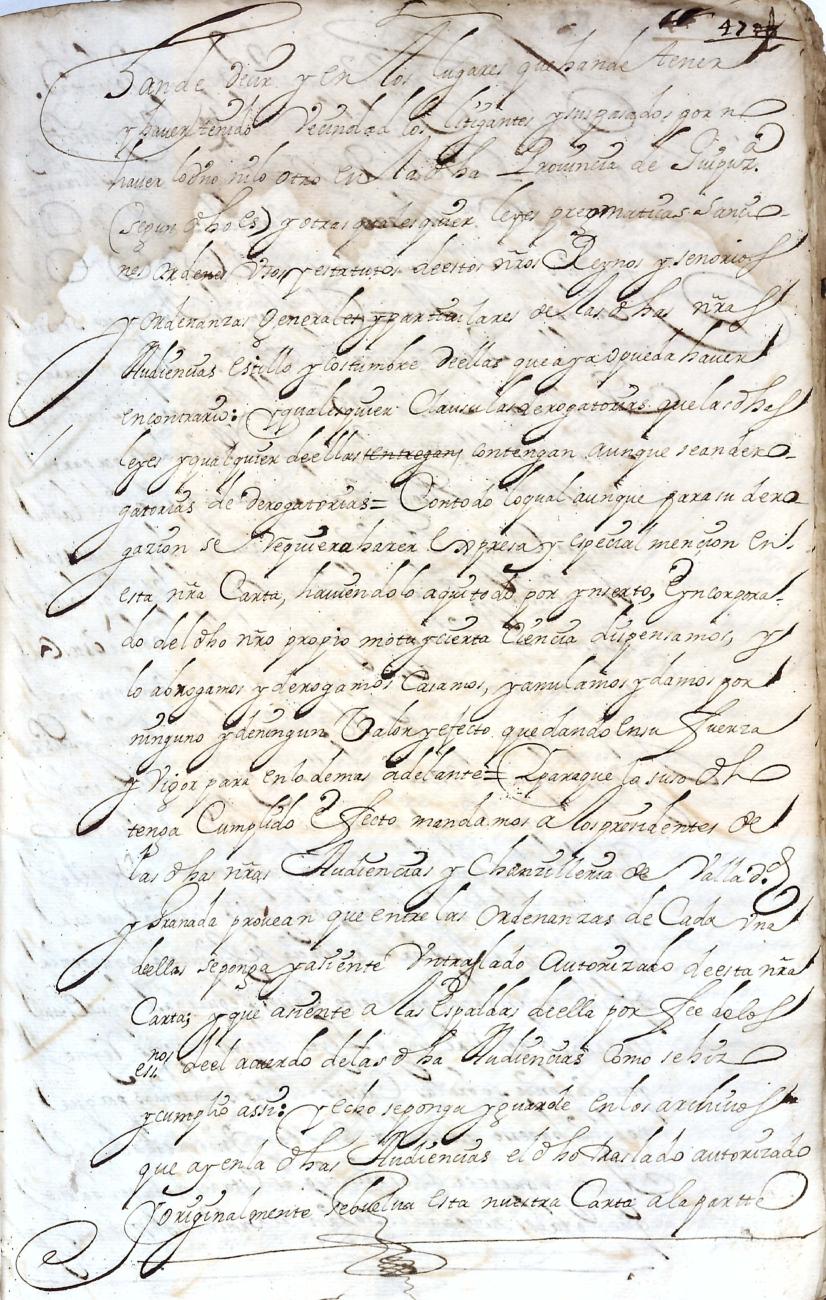 47
han de decir y en los lugares que han de tener
y haver tenido vecindad los litigantes y sus pasados por n
haver lo uno ni lo otro en la dha Provincia de Guipuz.ª
(segun dho es) y otras qualesquier leyes premáticas sanci-
nes ordenes usos y estatutos de estos nros Reynos y señorios
y ordenanzas generales y particulares de las dhas nras
Audiencias estillo y costumbre de ellas que aya o pueda haver
en contrario: y qualesquier Clausulas derogatorias que las dhas
leyes y qualquier de ellas contengan aunque sean dero-
gatorias de derogatorias = Con todo lo qual aunque para su dero
gazion se requiera hazer expresa y especial mencion en
esta nra Carta, haviendolo aqui todo por ynserto, e yncorpora-
do del dho nro propio motu y cierta Ciencia dispensamos, y
lo abrogamos y derogamos Casamos, y anulamos y damos por
ninguno y de ningun Valor y efecto quedando en su fuerza
y Vigor para en lo demas adelante = Y para que lo suso dh
tenga Cumplido Effecto mandamos a los presidentes de
las dhas nras Audiencias y Chanzilleria de Vallad.d
y Granada provean que entre las Ordenanzas de Cada una
de ellas se ponga y asiente un traslado autorizado de esta nra
Carta; y que asiente a las Espaldas de ella por fee de los
essnos de el acuerdo de las dha Audiencias como se hiz
y cumplio assi: y echo se ponga y guarde en los archivos
que ay en la dhas Audiencias el dho traslado autorizado
y originalmente se buelva esta nuestra Carta a la partte